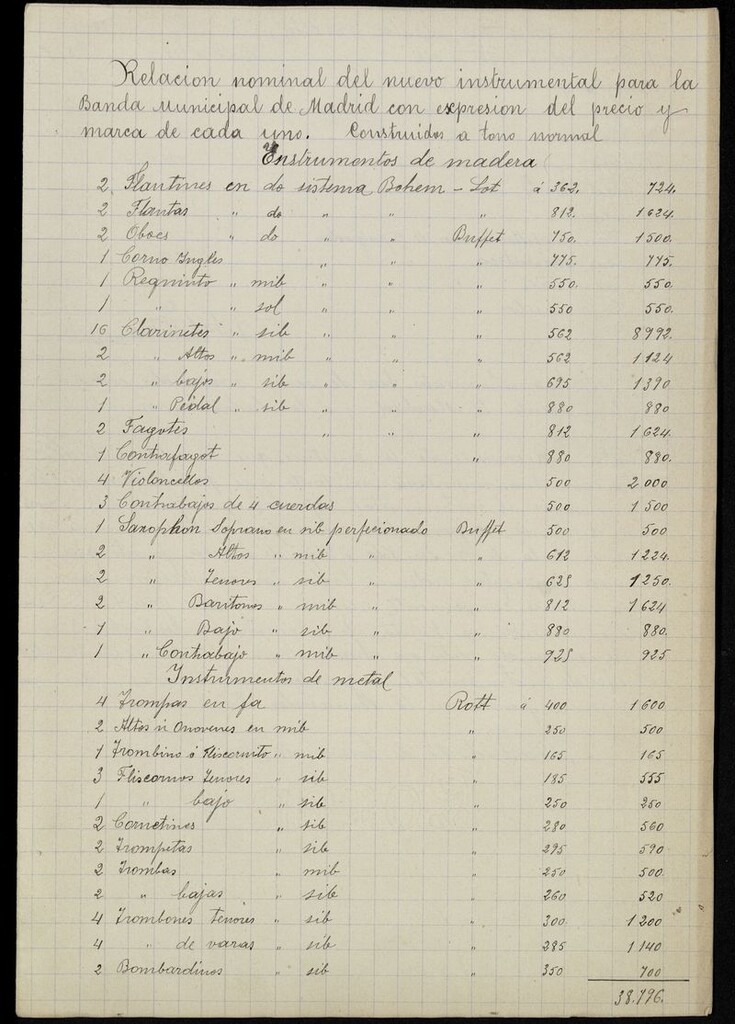 Relacion nominal del nuevo instrumental para la
Banda Municipal de Madrid con expresion del precio y
marca de cada uno. Construidos a tono normal
Instrumentos de madera
2 Flautines en do sistema Bohem - Lot á 362. 724.
2 Flautas " do " " " 812. 1624.
2 Oboes " do " " Buffet 750. 1500.
1 Corno Ingles " " " 775. 775.
1 Requinto " mib " " " 550. 550.
1 " " sol " " " 550 550.
16 Clarinetes " sib " " " 562 8992.
2 " Altos " mib " " " 562 1124
2 " bajos " sib " " " 695 1390
1 " Pedal " sib " " " 880 880
2 Fagotes " " " 812 1624.
1 Contrafagot " 880 880.
4 Violoncellos 500 2000
3 Contrabajos de 4 cuerdas 500 1500
1 Saxophon Soprano en sib perfecionado Buffet 500 500
2 " Altos " mib " " 612 1224.
2 " Tenores " sib " " 625 1250.
2 " Baritonos " mib " " 812 1624
1 " Bajo " sib " " 880 880.
1 " Contrabajo " mib " " 925 925
Instrumentos de metal
4 Trompas en fa Rott á 400 1600
2 Altos ú Onovenes en mib " 250 500
1 Trombino ó Fliscornito " mib " 165 165
3 Fliscornos Tenores " sib " 185 555
1 " bajo " sib " 250 250
2 Cornetines " sib " 280 560
2 Trompetas " sib " 295 590
2 Trombas " mib " 250 500.
2 " bajas " sib " 260 520
4 Trombones tenores " sib " 300 1200
4 " de varas " sib " 285 1140
2 Bombardinos " sib " 350 700
38.796.